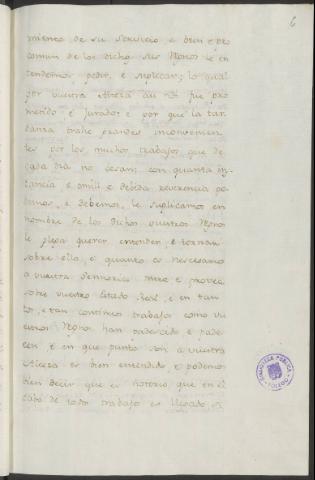 6
miento de su Servicio e bien e pro
comun de los dichos sus Reynos le en
tendemos pedir, e suplicar; lo qual
por vuestra Alteza asi fue pro
metido e jurado: e por que la tar
danza trahe grandes inconvenien
tes por los muchos trabajos que de
cada dia no cesan; con quanta ins
tancia e omill e debida reverencia po
demos, e debemos, le suplicamos en
nombre de los dichos vuestros Reynos
le plega querer entender, e tornar
sobre ello, e quanto es necesario
a vuestra Sennoria mire e provee
sobre vuestro Estado Real, e en tan
tos, e tan continuos trabajos como vu
estros Reynos han padescido e pade
cen, e en que punto son a vuestra
Alteza es bien entendido, e podemos
bien decir que es notorio, que en el
cabo de todo trabajo es llegado, si
BIBLIOTECA PUBLICA
TOLEDO